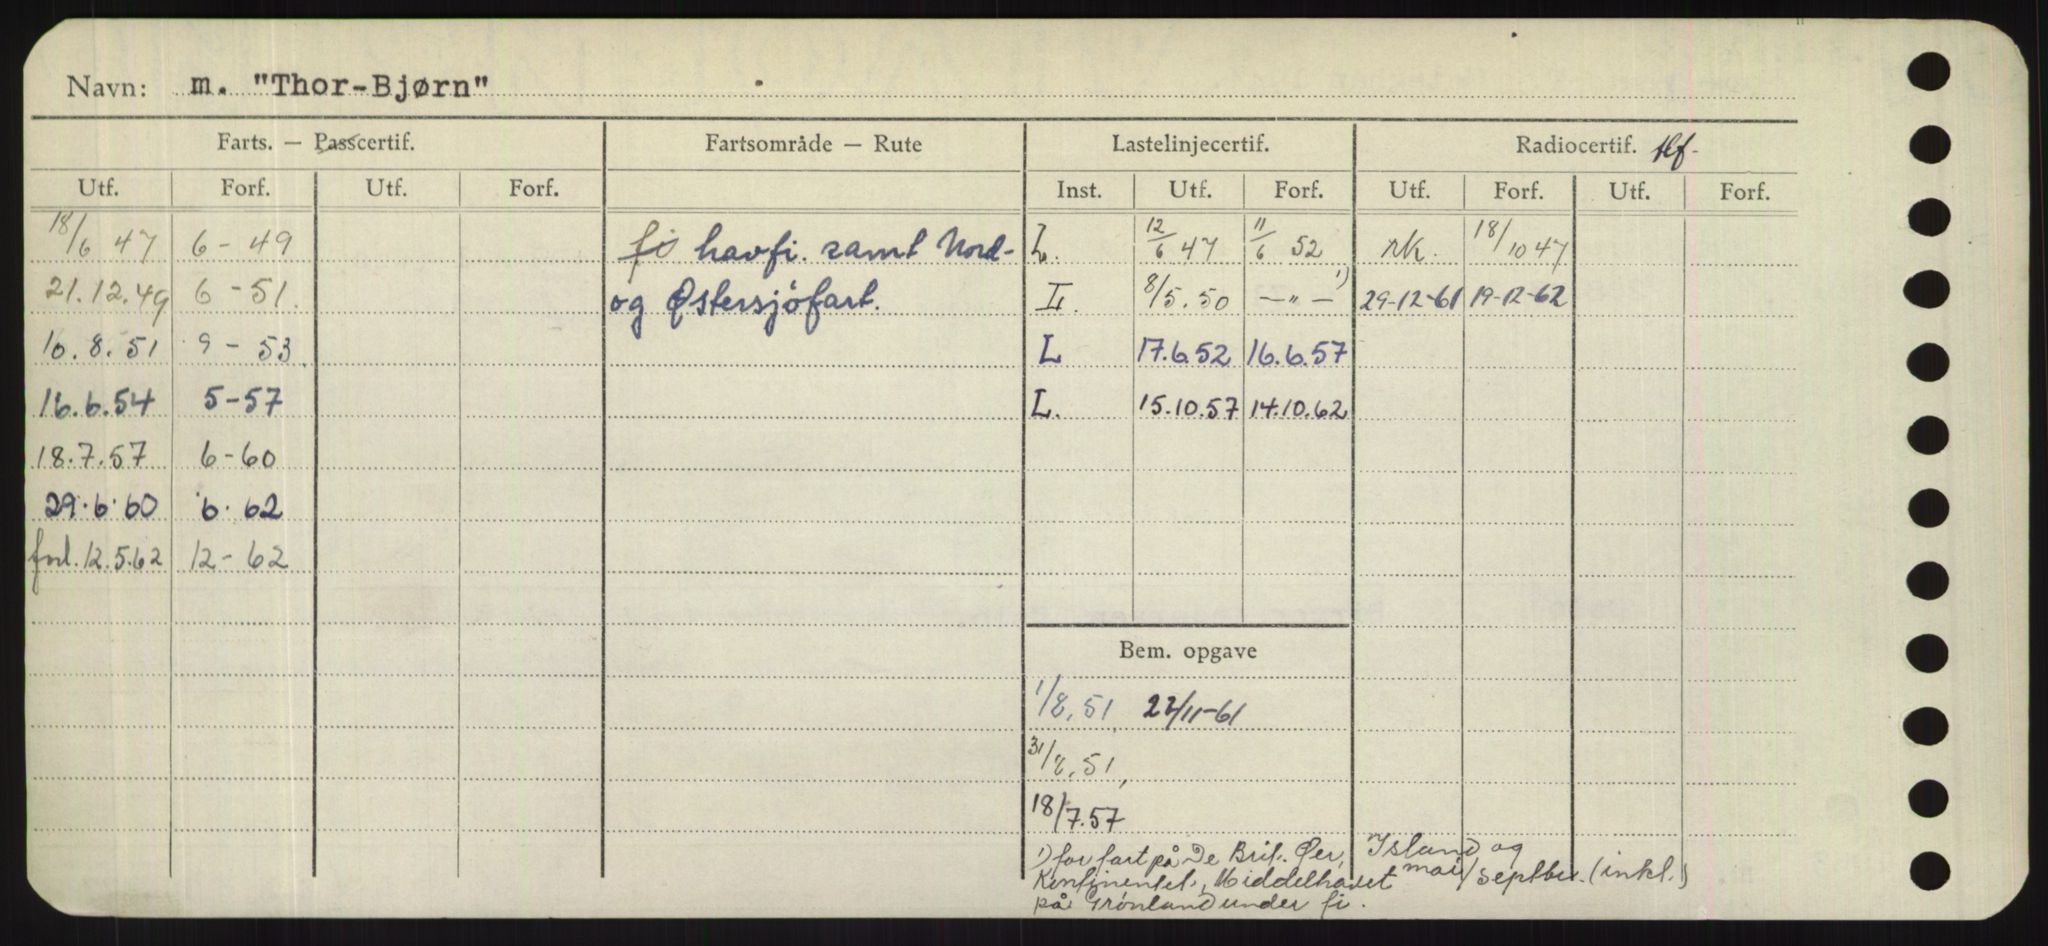 Navn: m. "Thor-Bjørn"
Farts. — Passcertif. Fartsområde — Rute Lastelinjecertif. Radiocertif. tlf.
Utf. Forf. Utf. Forf. Inst. Utf. Forf. Utf. Forf. Utf. Forf.
18/6 47 6-49 fi havfi. samt Nord- L. 12/6 47 11/6 52 rk. 18/10 47
21.12.49 6-51. og Østersjøfart. L. 8/5.50 —"— 1) 29-12-61 19-12-62
10.8.51 9-53 L 17.6.52 16.6.57
16.6.54 5-57 L. 15.10.57 14.10.62
18.7.57 6-60
29.6.60 6.62
forl. 12.5.62 12-62
Bem. opgave
1/8.51 22/11-61
31/8.51,
18/7.57
1) for fart på De Brit. Øer, Island og
Kontinentet, Middelhavet mai/septbr. (inkl.)
på Grønland under fi.